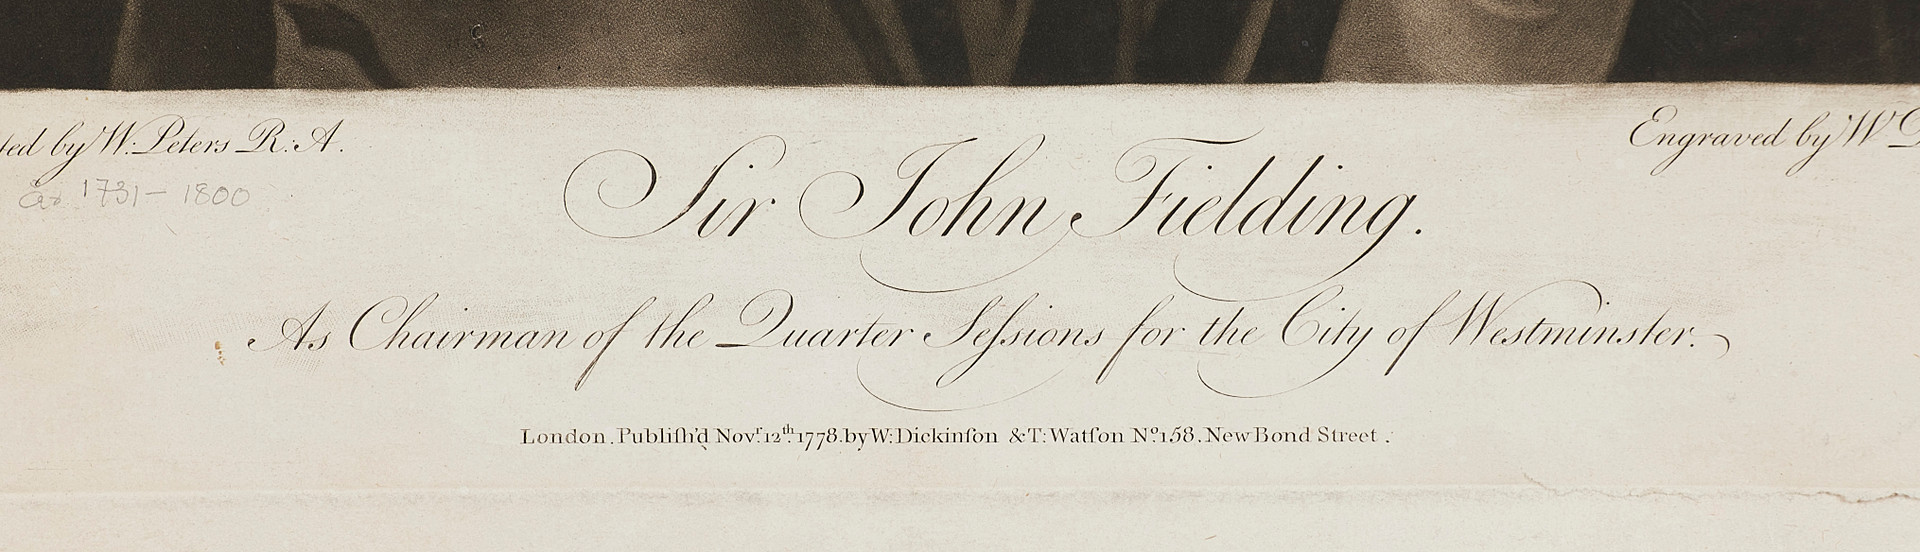 ted by W: Peters R:A.
Engraved by W D
1731 – 1800
Sir John Fielding.
As Chairman of the Quarter Seſsions for the City of Westminster.
London. Publiſh'd Novr. 12th. 1778. by W: Dickinſon & T: Watſon No. 158. New Bond Street.